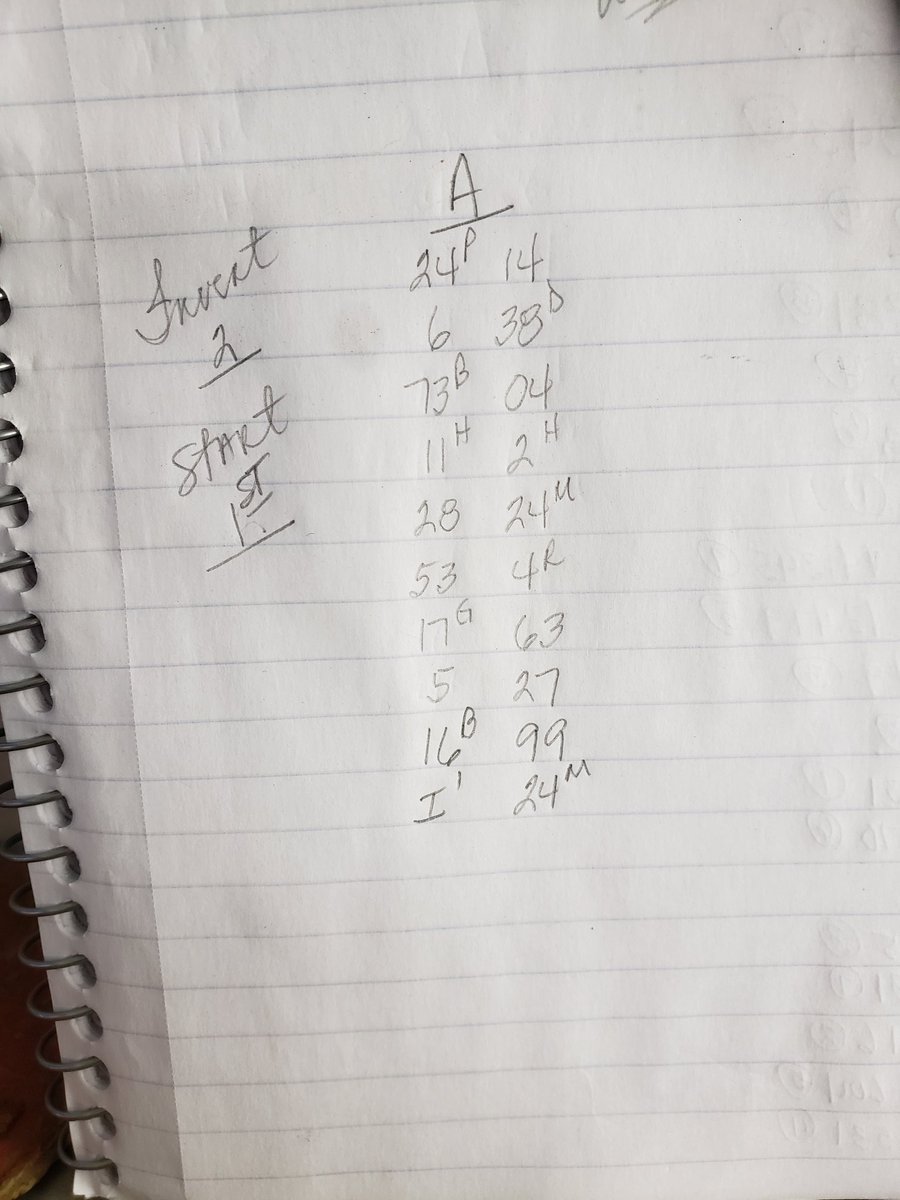 A
Invert
2
START
1ST
24P 14
6 38D
73B 04
11H 2H
28 24M
53 4R
17G 63
5 27
16B 99
I' 24M